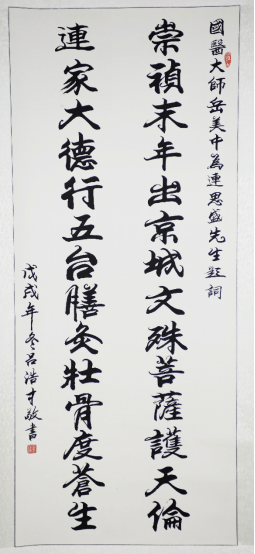 國醫大師岳美中為連思盛先生題詞
崇禎末年出京城文殊菩薩護天倫
連家大德行五台膳灸壯骨度蒼生
戊戌年冬呂浩才敬書